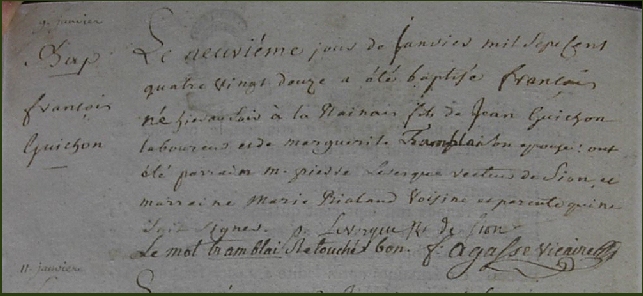 9. janvier
Bap
françois
Guichon
Le neuviéme jour de janvier mil sept cent
quatre vingt douze a été baptisé françois
né hier au soir à la Rainais fils de Jean Guichon
laboureur et de marguerite Tramblai son epouse: ont
été parrain m. pierre Levesque recteur de Sion, et
marraine Marie Rialaud voisine et parente qui ne
signer. Levesque Rr de Sion
Le mot tramblai Retouché bon. f. agasse vicaire
11. janvier